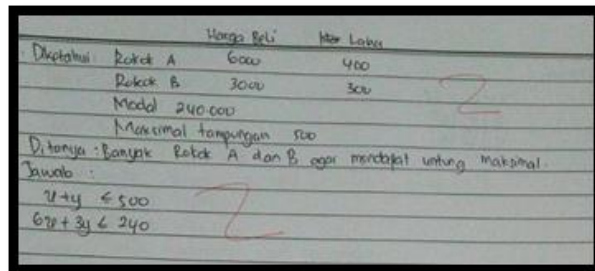 Harga Beli Laba
Diketahui Rokok A 6000 400
Rokok B 3000 300
Modal 240.000
Maksimal tampungan 500
Ditanya : Banyak Rokok A dan B agar mendapat untung maksimal.
Jawab :
x+y ≤ 500
6x + 3y ≤ 240